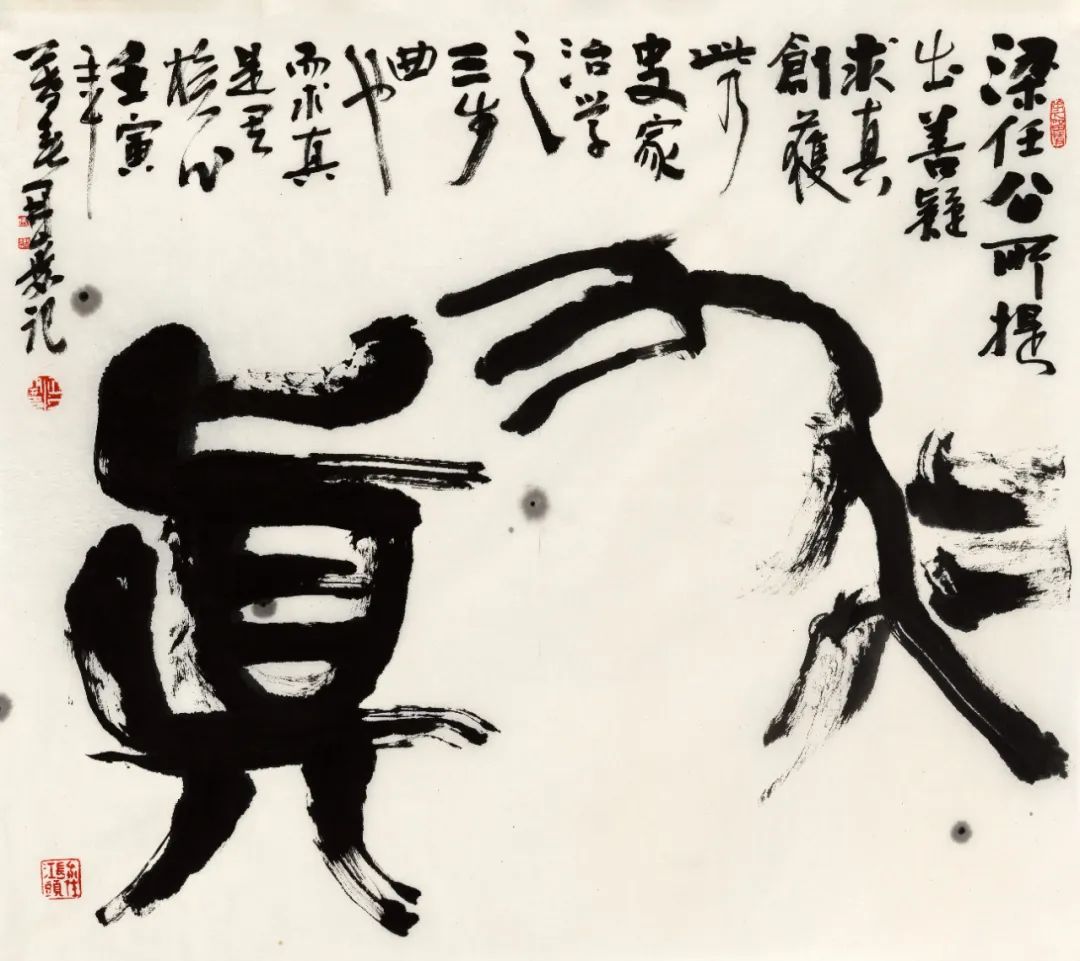 求真
梁任公所提
出善疑
求真
創獲
此乃
史家
治学
之
三步
曲
也
而求真
是
核心
壬寅
暮春
記